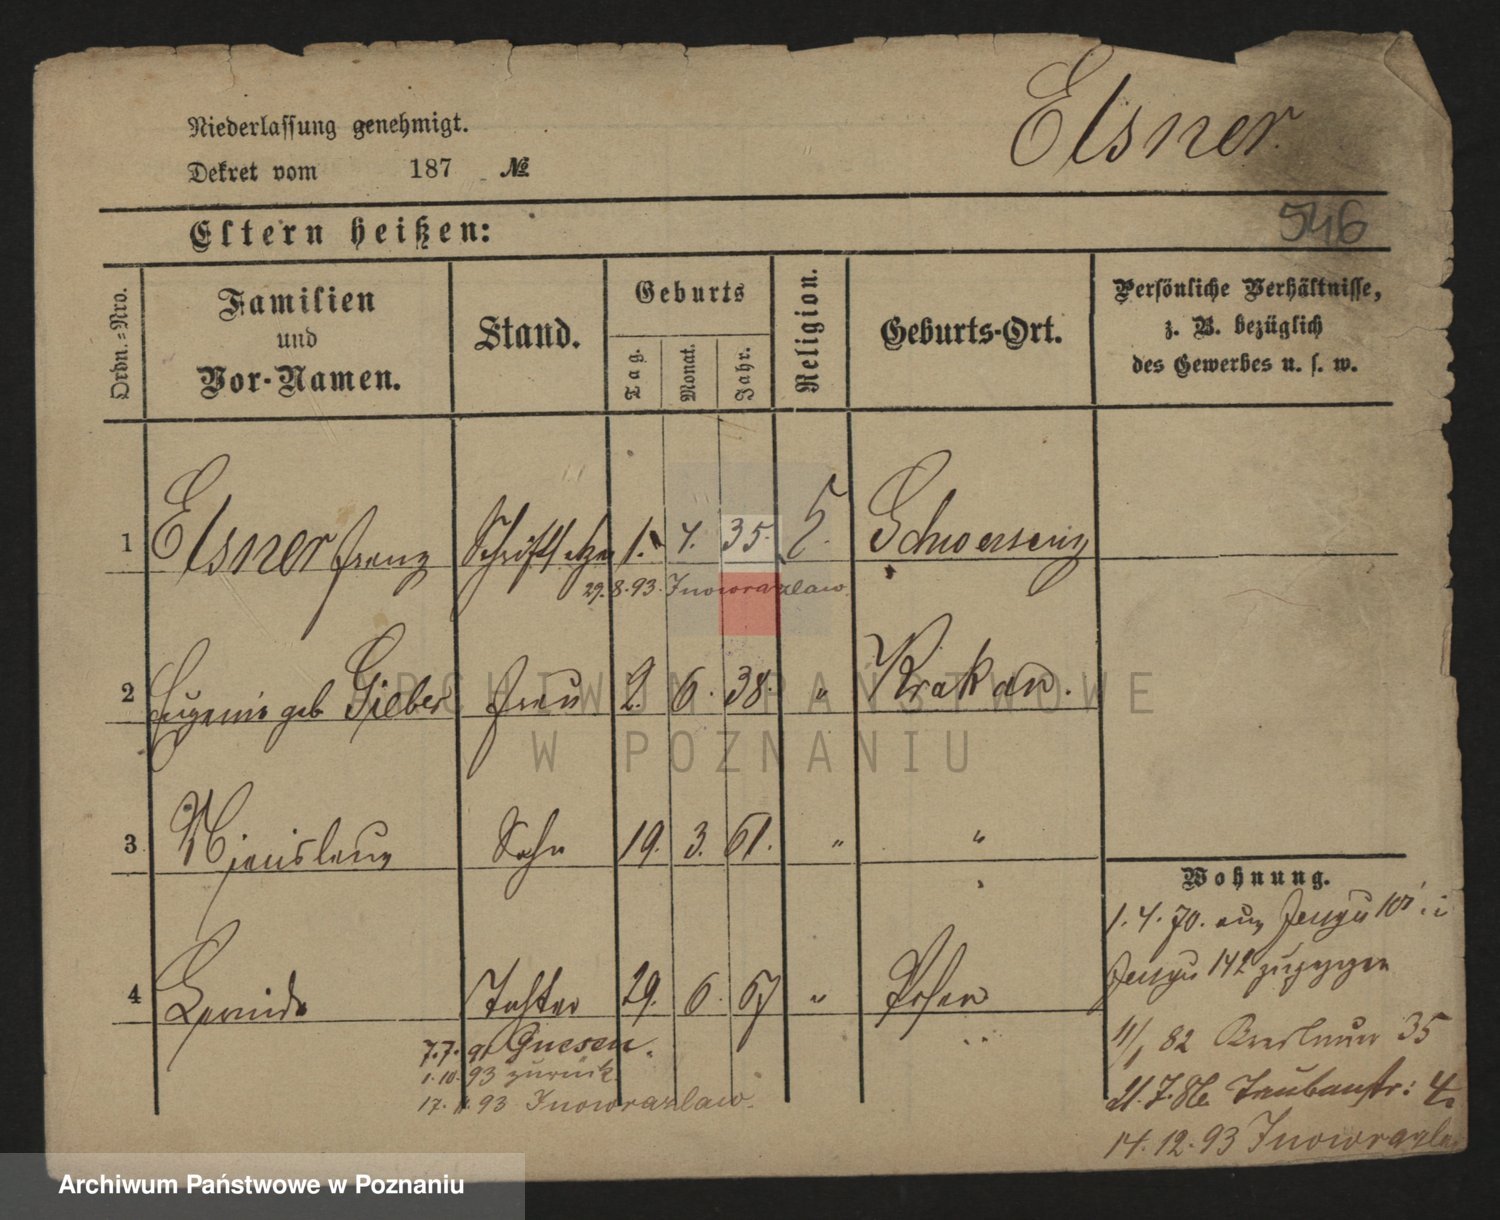 Elsner.
Niederlassung genehmigt.
Dekret vom 187 №
546
Eltern heißen:
Ordn.-Nro.
Familien
und
Vor-Namen.
Stand.
Geburts
Tag.
Monat.
Jahr.
Religion.
Geburts-Ort.
Persönliche Verhältnisse,
z. B. bezüglich
des Gewerbes u. s. w.
1 Elsner Franz Schriftsetzer 1. 4. 35. Schwersenz
29.8.93. Inowrazlaw.
2 Eugenie geb Frau 2. 6. 38. " Krakau.
3 Sohn 19. 3. 61. " "
4 Tochter 29. 6. 67 " Posen
7.7. 91 Gnesen.
1.10.93 zurück.
17. 93 Inowrazlaw.
Wohnung.
1.4.70. aus
142 gezogen
82 Breslauer 35
21.7.86. Taubenstr: 4.
14.12.93 Inowrazla
ARCHIWUM PAŃSTWOWE
W POZNANIU
Archiwum Państwowe w Poznaniu